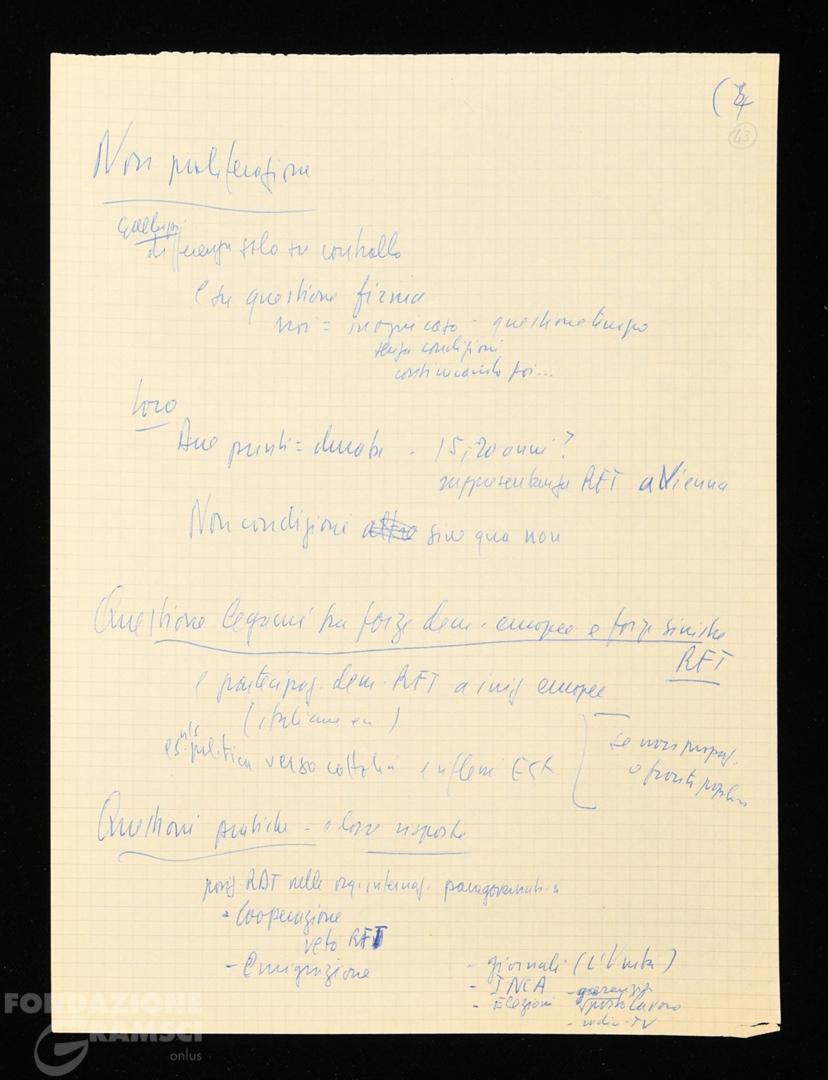 (4
43
Non proliferazione
differenza solo su controllo
e su questione firma
noi = in ogni caso - questione tempo
senza condizioni
cominciando poi...
Loro
Due punti = durata - 15, 20 anni?
rappresentanza RFT a Vienna
Non condizione sine qua non
Questione legami tra forze dem. europee e forze sinistre
RFT
e partecipaz. dem. RFT a iniz. europee
(italiane ecc)
es. ns politica verso cattolici e riflessi Est
se non propag.
o fronti popolari
Questioni pratiche - e loro risposte
posiz. RDT nelle org. internaz. paragovernative
- Cooperazione
veto RFT
- Emigrazione
- giornali (l'Unità)
- INCA
- Elezioni
posto lavoro
- radio-TV
FONDAZIONE
GRAMSCI
onlus